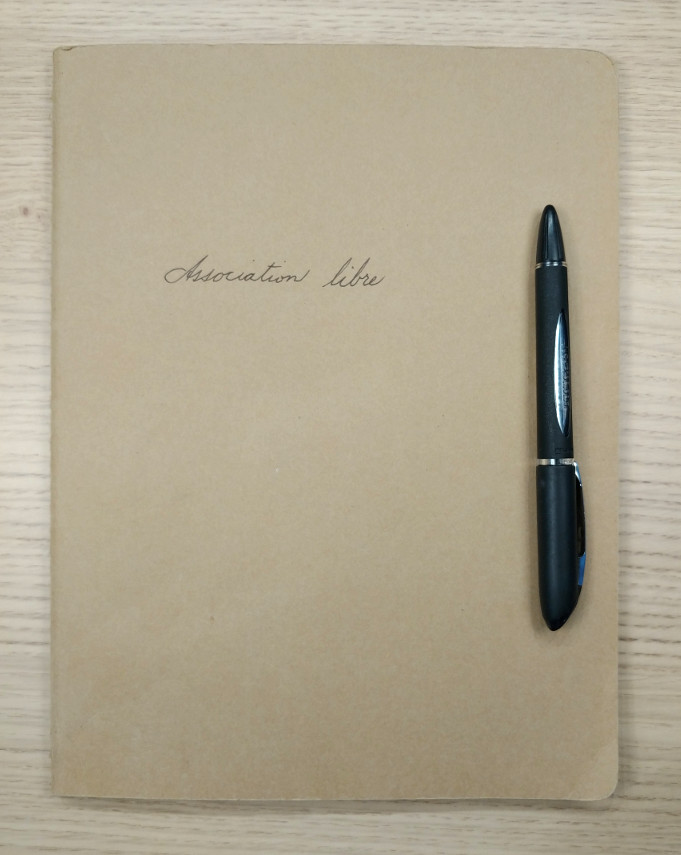 Association libre